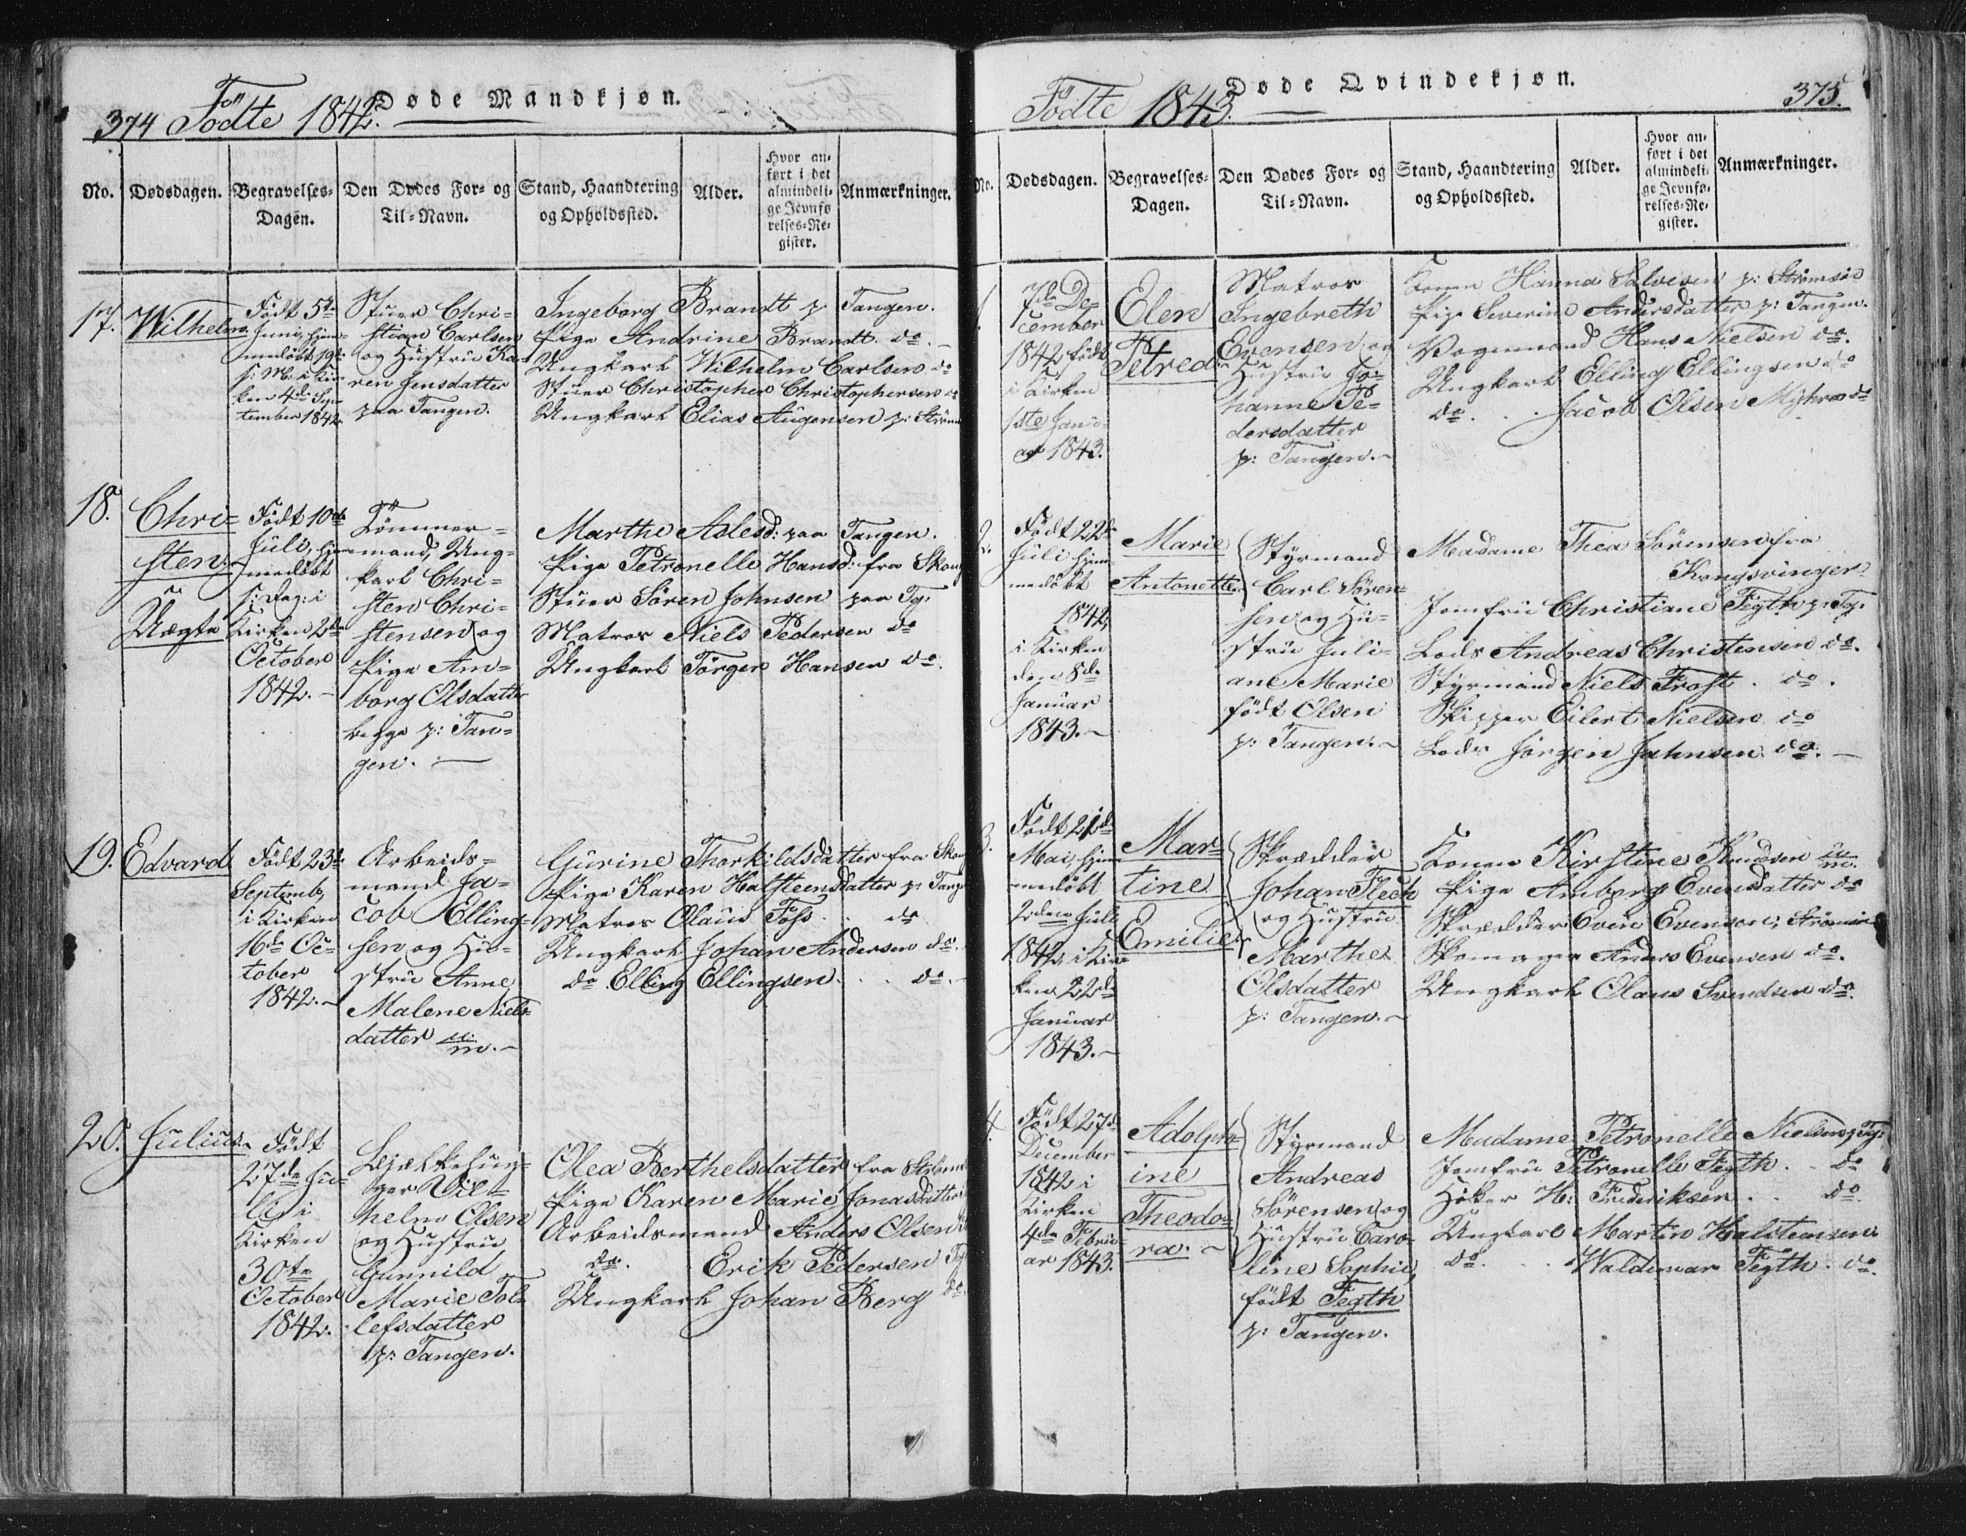 374 Födte 1842. Døde Mandkjøn.
No.
Dødsdagen.
Begravelses-
Dagen.
Den Dødes For- og
Til-Navn.
Stand, Haandtering
og Opholdssted.
Alder.
Hvor an-
ført i det
almindeli-
ge Jevnfø
relses-Re-
gister.
Anmærkninger.
17.
Wilhelm
Født 5te
Juni, hjem-
medöbt 19de
s: M: i Kir-
ken 4de Sep-
tember 1842.
Stuer Chri-
stian Carlsen
og Hustrü Ka-
ren Jensdatter
paa Tangen.
Ingeborg Brandt p Tangen.
Pige Andrine Brandt do. -
Ungkarl Wilhelm Carlsen do
Stuer Christopher Christophersen do
Ungkarl Elias Aügensen p: Strøms
18.
Chri-
sten
Uægte
Födt 10de
Juli, hjem-
medöbt
s: Dag: i
Kirken 2den
October
1842. -
Tömmer-
mand, Ung-
karl Chri-
sten Chri-
stensen og
Pige Am-
borg Olsdatter
begge p: Tan-
gen. -
Marthe Aslesd: paa Tangen.
Pige Petronelle Hansd: fra Skoug
Stuer Sören Johnsen paa Tg:
Matros Niels Pedersen do
Ungkarl Törger Hansen do.
19.
Edvard
Födt 23de
Septemb,
i Kirken
16de Oc-
tober
1842. -
Arbeids-
mand Ja-
cob Elling-
sen og Hü-
strü Anne
Malene Niels-
datter
Gürine Thorkildsdatter fra Skoug
Pige Karen Halsteensdatter p: Tang
Matros Olaüs Foss . . do
Ungkarl Johan Andersen do.
do Elling Ellingsen . . . do. -
20.
Julius
Födt
27de Ju-
li, i
Kirken
30te
October
1842.
Bjælkehug-
ger Vil-
helm Olsen
og Hustrü
Gunnild
Marie Tol-
lefsdatter
p: Tangen.
Olea Berthelsdatter fra Strömsö
Pige Karen Marie Jonasdatter
Arbeidsmand Anders Olsen
do. Erik Pedersen Tg
Ungkarl Johan Berg do.
Födte 1843. Døde Qvindekjøn. 375.
No.
Dødsdagen.
Begravelses-
Dagen.
Den Dødes For- og
Til-Navn.
Stand, Haandtering
og Opholdssted.
Alder.
Hvor an-
ført i det
almindeli-
ge Jevnfø-
relses-Re-
gister.
Anmærkninger.
1
7de De-
cember
1842 født
i Kirken
1ste Janü-
ar 1843.
Elen
Petrea
Matros
Ingebreth
Evensen og
Hustrü Jo-
hanne Pe-
dersdatter
p: Tangen. -
Konen Hanna Salvesen p: Strömsöe
Pige Severine Andersdatter p: Tangen.
Vognmand Hans Nielsen do.
Ungkarl Elling Ellingsen do
do. . . Jacob Olsen Myhra do
2.
Födt 22de
Juli, hjem-
medöbt
1842,
i Kirken
den 8de
Januar
1843. -
Marie
Antonette
Styrmand
Carl Sören-
sen og Hu-
strü Juli-
ane Marie
født Olsen
p: Tangen. -
Madame Thea Sörensen fra
Kongsvinger
Jomfru Christiane Fegth p: Tg:
Lods Andreas Christensen do.
Styrmand Niels Frost . do.
Skipper Eilert Nielsen do
Lods Jörgen Jahnsen do. -
3.
Födt 21de
Mai, hjem-
medöbt
2den Juli
1842, i Kir-
ken 22de
Januar
1843. -
Mar-
tine
Emilie
Skrædder
Johan Flech
og Hustrü
Marthe
Olsdatter
p: Tangen. -
Konen Kirstine Knudsen
Pige Amborg Evensdatter do
Skrædder Even Evensen, Strömsöe
Skomager Anders Evensen do.
Ungkarl Olaus Svendsen do.
4.
Födt 27de
December
1842 i
Kirken
4de Febrü-
ar 1843.
Adolph-
ine
Theodo-
ra. -
Styrmand
Andreas
Sörensen og
Hustrü Caro-
line Sophie
født Fegth
p: Tangen.
Madame Petronelle Nielsen p Tg:
Jomfrü Petronelle Fegth . . do
Höker H: Frederiksen . . do.
Ungkarl Martin Halstensen
do. . . Waldemar Fegth . do.